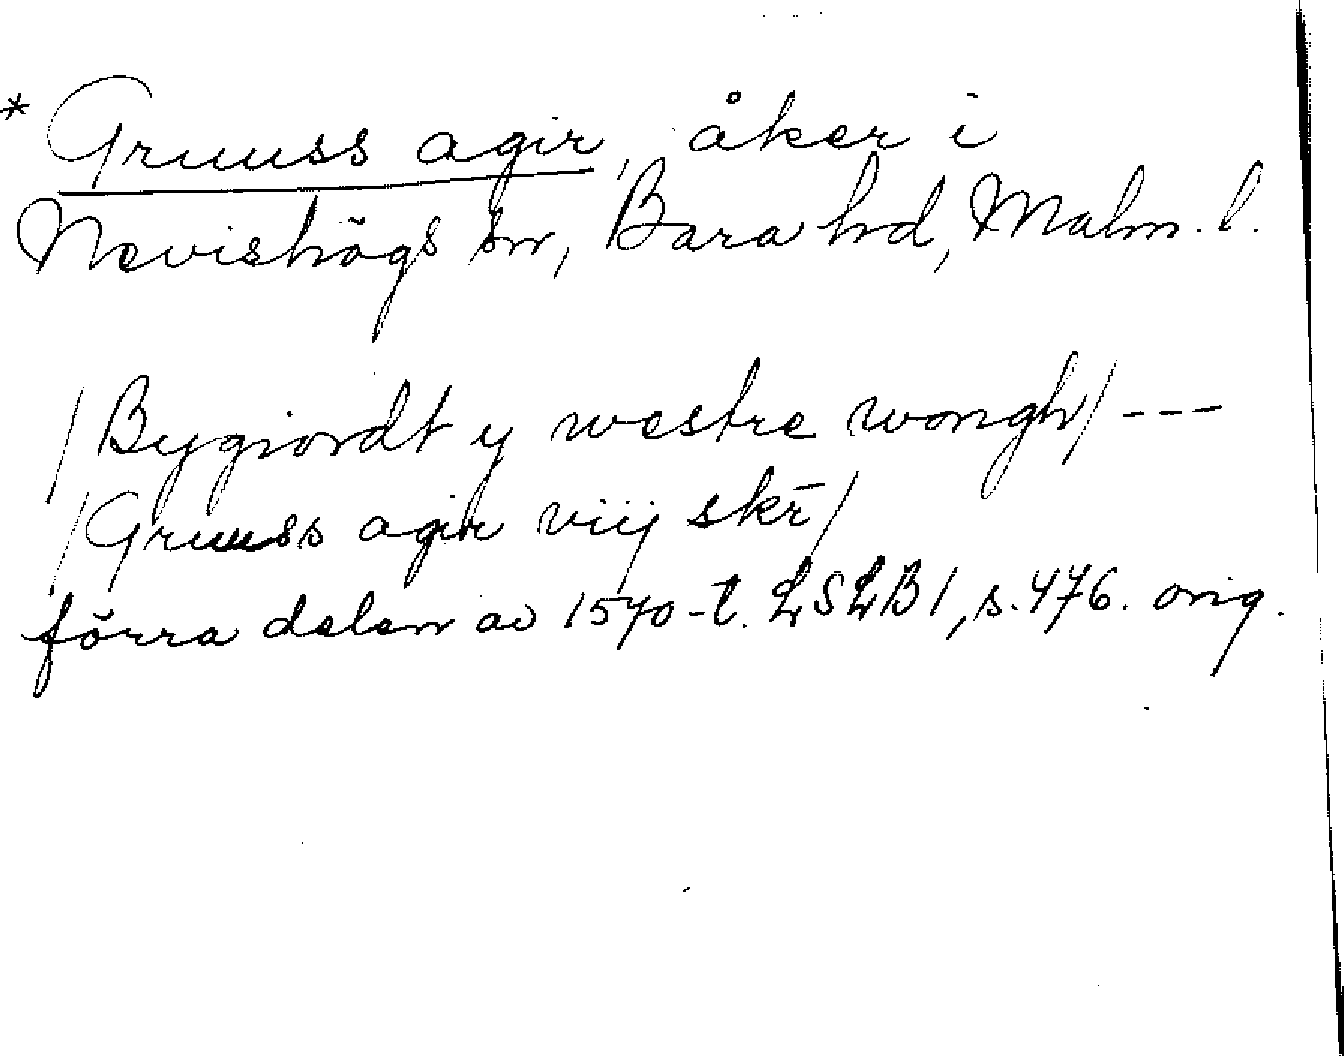 * Gruuss agir, åker i
Nevishögs sn, Bara hd, Malm. l.
/Bygiordt y westre wongh/ ---
/Gruuss agir viij skr̄/
förra delen av 1570-t. LSLB1, s. 476. orig.